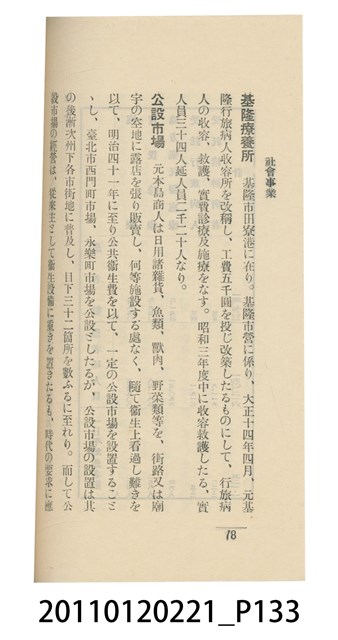 社會事業
基隆療養所　基隆市田寮港に在り。基隆市營に係り、大正十四年四月、元基
隆行旅病人收容所を改稱し、工費五千圓を投じ改築したるものにして、行旅病
人の收容、救護、實費診療及施療をなす。昭和三年度中に收容救護したる、實
人員三十四人延人員二千二十人なり。
公設市場　元本島商人は日用諸雜貨、魚類、獸肉、野菜類等を、街路又は廟
宇の空地に露店を張り販賣し、何等施設する處なく、隨て衞生上看過し難きを
以て、明治四十一年に至り公共衞生費を以て、一定の公設市場を設置すること
ゝし、臺北市西門町市場、永樂町市場を公設としたるが、公設市場の設置は其
の後漸次州下各市街地に普及し、目下三十二箇所を數ふるに至れり。而して公
設市場の經營は、從來主として衞生設備に重きを置きたるも、時代の要求に應
78
20110120221_P133